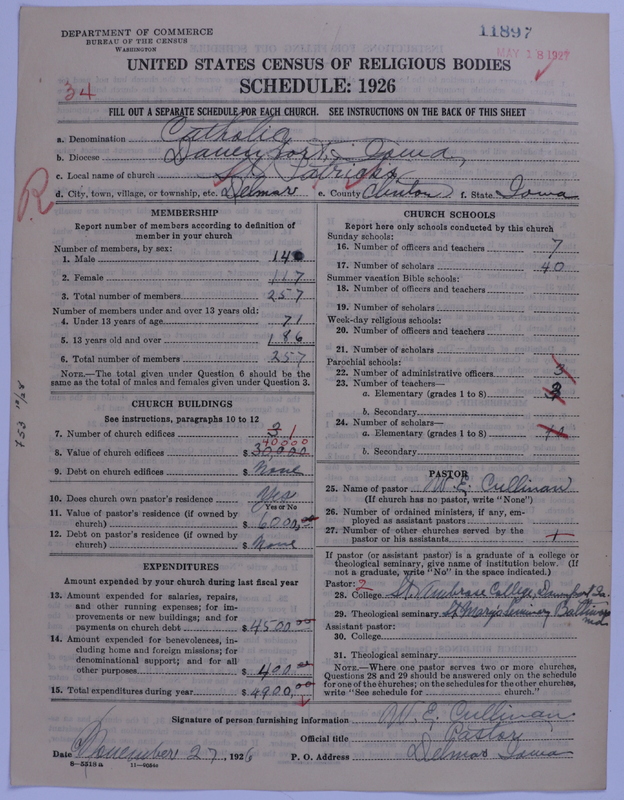 DEPARTMENT OF COMMERCE
BUREAU OF THE CENSUS
WASHINGTON
11897
MAY 18 1927
UNITED STATES CENSUS OF RELIGIOUS BODIES
SCHEDULE: 1926
34
FILL OUT A SEPARATE SCHEDULE FOR EACH CHURCH. SEE INSTRUCTIONS ON THE BACK OF THIS SHEET
a. Denomination Catholic
b. Diocese Davenport, Iowa,
c. Local name of church St. Patricks
R
d. City, town, village, or township, etc. Delmar e. County Clinton f. State Iowa
MEMBERSHIP
Report number of members according to definition of member in your church
Number of members, by sex:
1. Male 140
2. Female 117
3. Total number of members 257
Number of members under and over 13 years old:
4. Under 13 years of age 71
5. 13 years old and over 186
6. Total number of members 257
NOTE.—The total given under Question 6 should be the
same as the total of males and females given under Question 3.
CHURCH BUILDINGS
See instructions, paragraphs 10 to 12
7. Number of church edifices 3 1
40000
8. Value of church edifices $ 30,000
9. Debt on church edifices $ None
10. Does church own pastor's residence Yes
Yes or No
11. Value of pastor's residence (if owned by
church) $ 6000,00
12. Debt on pastor's residence (if owned by
church) $ None
EXPENDITURES
Amount expended by your church during last fiscal year
13. Amount expended for salaries, repairs,
and other running expenses; for im-
provements or new buildings; and for
payments on church debt $ 4500 00
14. Amount expended for benevolences, in-
cluding home and foreign missions; for
denominational support; and for all
other purposes $ 400.00
15. Total expenditures during year $ 4900,00
CHURCH SCHOOLS
Report here only schools conducted by this church
Sunday schools:
16. Number of officers and teachers 7
17. Number of scholars 40
Summer vacation Bible schools:
18. Number of officers and teachers
19. Number of scholars
Week-day religious schools:
20. Number of officers and teachers
21. Number of scholars
Parochial schools:
22. Number of administrative officers 3
23. Number of teachers—
a. Elementary (grades 1 to 8)
b. Secondary
24. Number of scholars—
a. Elementary (grades 1 to 8)
b. Secondary
PASTOR
25. Name of pastor W. E. Cullinan
(If church has no pastor, write "None")
26. Number of ordained ministers, if any, em-
ployed as assistant pastors
27. Number of other churches served by the
pastor or his assistants 1
If pastor (or assistant pastor) is a graduate of a college or
theological seminary, give name of institution below. (If
not a graduate, write "No" in the space indicated.)
Pastor: 2
28. College St. Ambrose College, Davenport Ia.
29. Theological seminary St Marys Seminary Baltimore
Md
Assistant pastor:
30. College
31. Theological seminary
NOTE.—Where one pastor serves two or more churches,
Questions 28 and 29 should be answered only on the schedule
for one of the churches; on the schedules for the other churches,
write "See schedule for church."
Signature of person furnishing information W. E. Cullinan
Official title Pastor
Date November 27, 1926 P. O. Address Delmar Iowa
8—5318 a